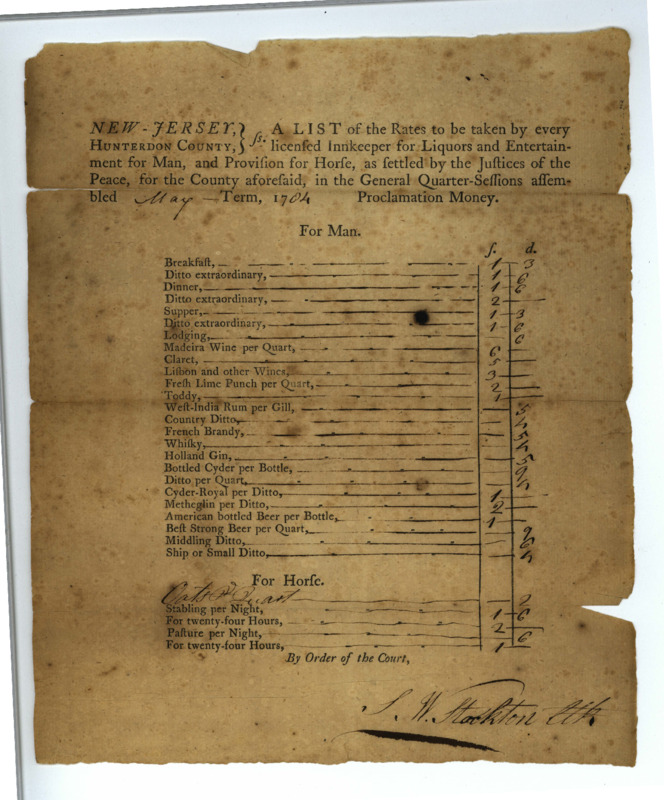 NEW-JERSEY, } ſs. A LIST of the Rates to be taken by every
HUNTERDON COUNTY, } licenſed Innkeeper for Liquors and Entertain-
ment for Man, and Proviſion for Horſe, as ſettled by the Juſtices of the
Peace, for the County aforeſaid, in the General Quarter-Seſſions aſſem-
bled May Term, 1784 Proclamation Money.
For Man.
ſ. d.
Breakfaſt, 1 3
Ditto extraordinary, 1 6
Dinner, 1 6
Ditto extraordinary, 2
Supper, 1 3
Ditto extraordinary, 1 6
Lodging, 6
Madeira Wine per Quart, 6
Claret, 5
Liſbon and other Wines, 3
Freſh Lime Punch per Quart, 2
Toddy, 1
Weſt-India Rum per Gill,
Country Ditto,
French Brandy,
Whiſky,
Holland Gin,
Bottled Cyder per Bottle,
Ditto per Quart,
Cyder-Royal per Ditto, 1
Metheglin per Ditto, 2
American bottled Beer per Bottle, 1
Beſt Strong Beer per Quart, 9
Middling Ditto, 6
Ship or Small Ditto,
For Horſe.
Oats pr Quart 2
Stabling per Night, 1 6
For twenty-four Hours, 2
Paſture per Night, 6
For twenty-four Hours, 1
By Order of the Court,
S. W. Stockton Clk